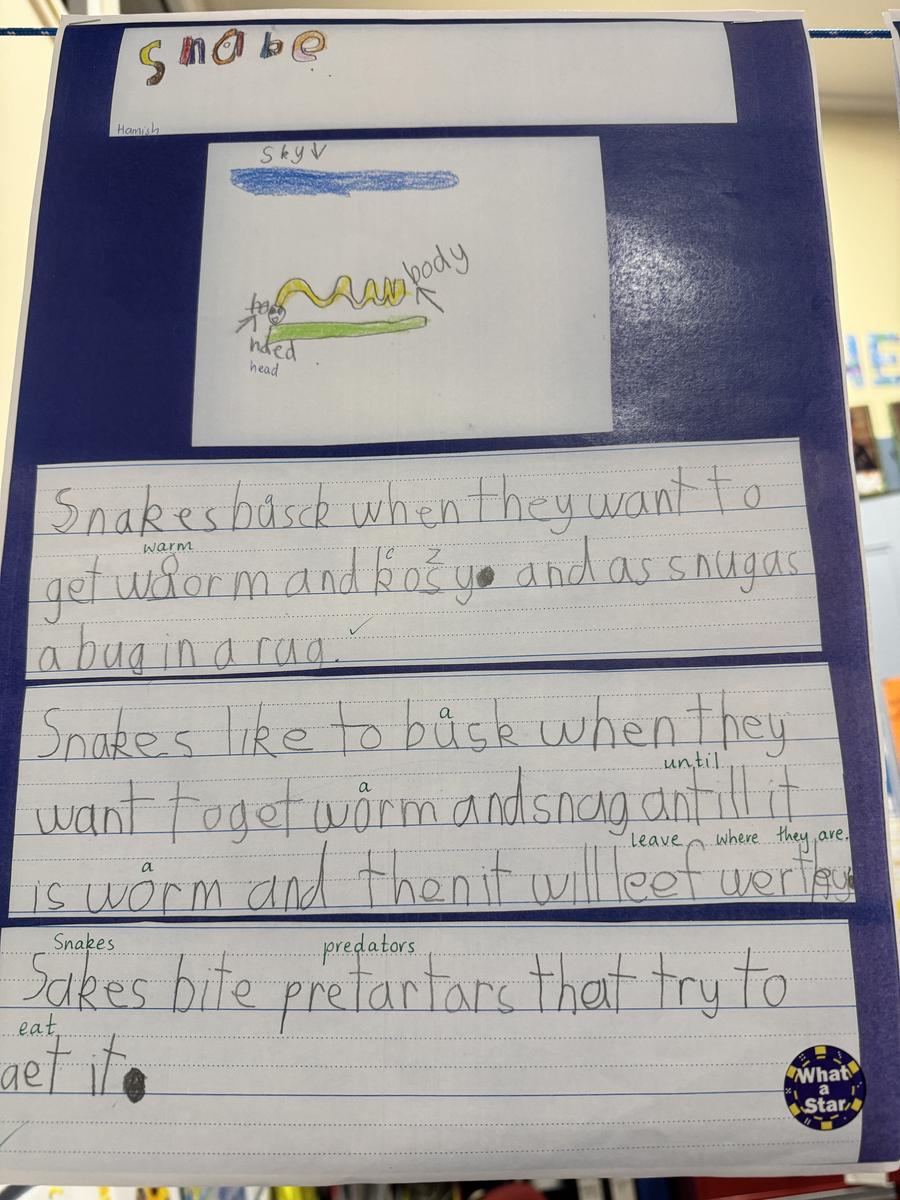 snake
Hamish
sky
body
hded
head
Snakes basck when they want to
warm
c z
get waorm and kosy. and as snug as
a bug in a rug.
a
Snakes like to busk when they
until
a
want to get worm and snag antill it
leave where they are.
a
is worm and then it will leef wer they
Snakes predators
Sakes bite pretartars that try to
eat
aet it.
What
a
Star